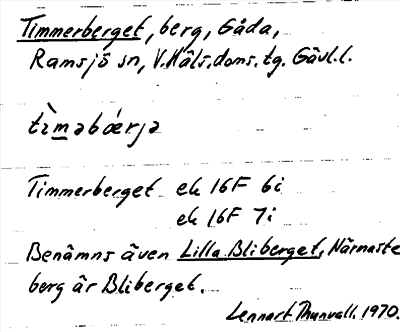 Timmerberget, berg, Gåda,
Ramsjö sn, V.Häls.doms.tg. Gävl.l.
tìm̲əbǿrjə
Timmerberget ek 16F 6i
ek 16F 7i
Benämns även Lilla Bliberget. Närmaste
berg är Bliberget.
Lennart Thunvall. 1970.